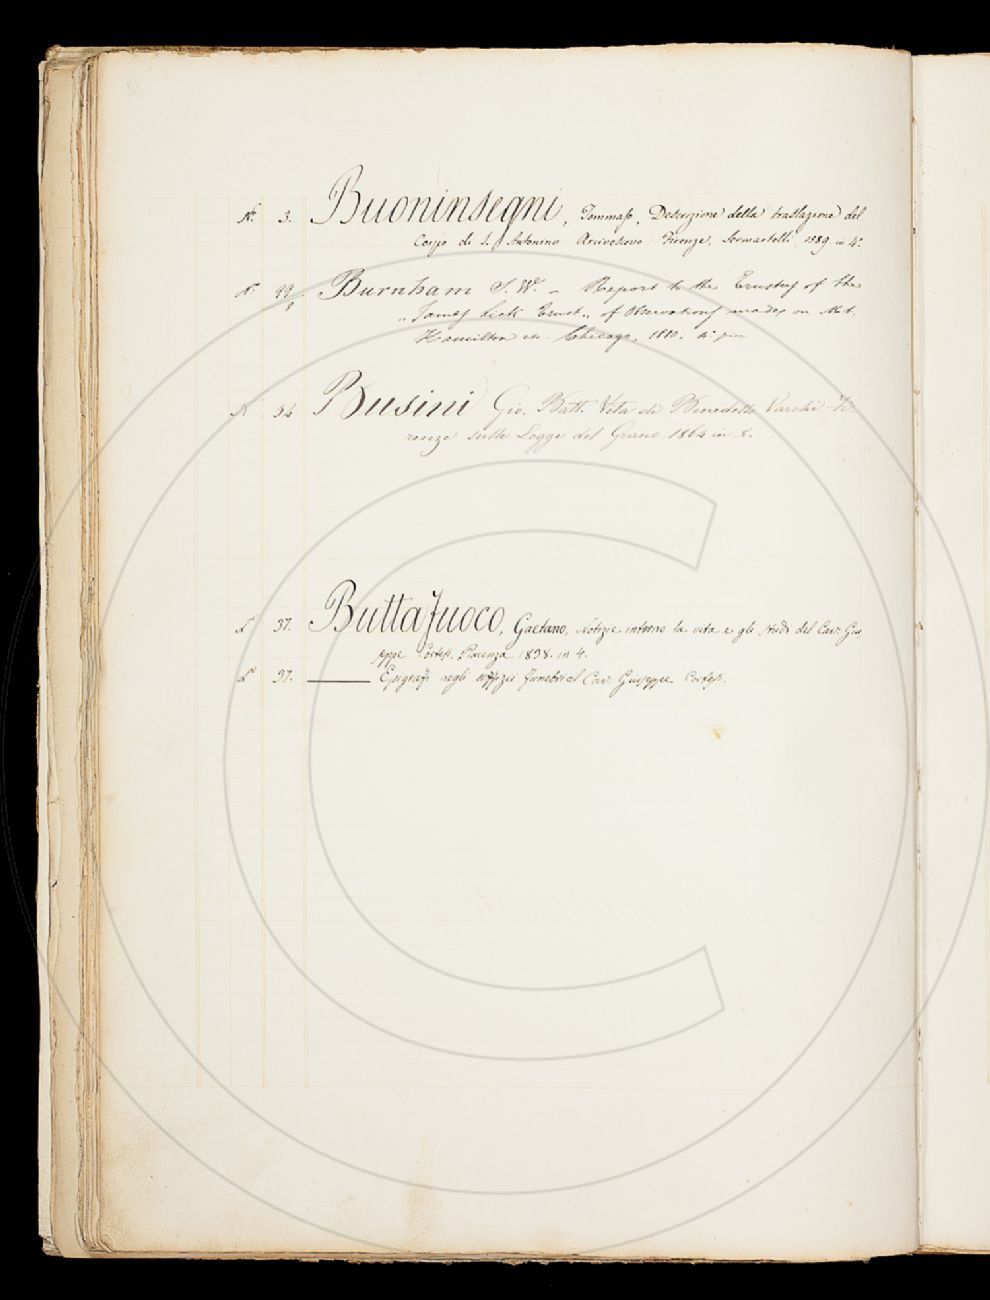 N. 3. Buoninsegni, Tommaso, Descrizione della traslazione del
Corpo di S. Antonino Arcivescovo. Firenze, Sermartelli, 1589 in 4.
N. 99 Burnham S. W. - Report to the Trustees of the
"James Lick Trust" of Observations made on Mt.
Hamilton etc. Chicago, 1880. 4.
N. 34 Busini Gio. Batt. Vita di Benedetto Varchi. Fi-
renze sulle Logge del Grano 1864 in 8.
37. Buttafuoco, Gaetano, Notizie intorno la vita e gli studi del Cav. Giu
seppe Cortesi. Piacenza 1838. in 4.
37. ——— Epigrafi negli uffizii funebri al Cav. Giuseppe Cortesi.